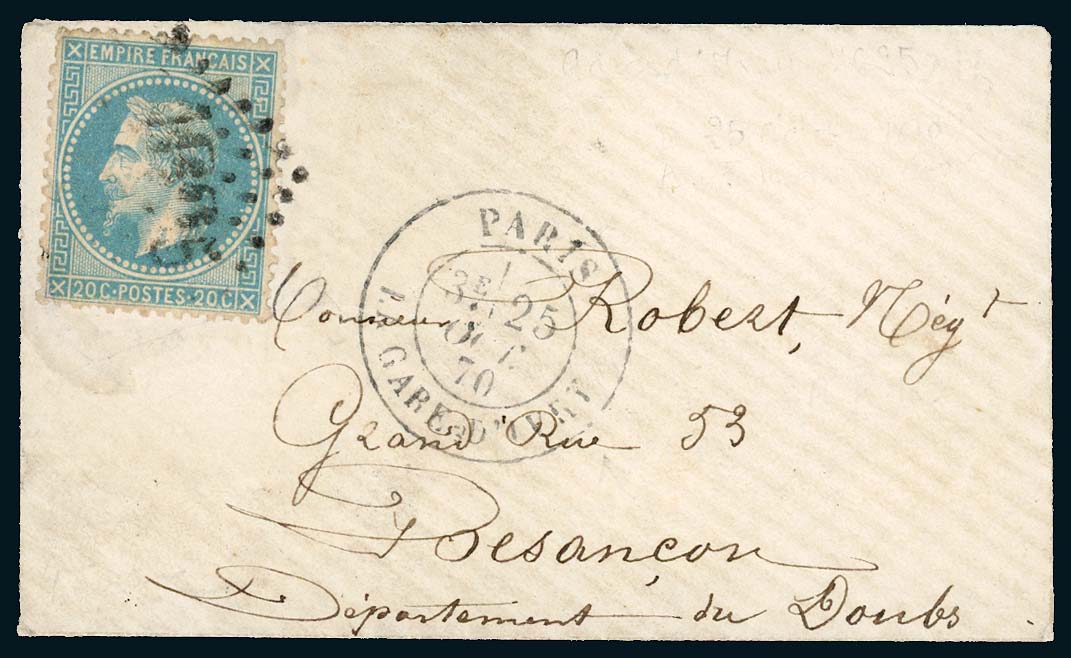 EMPIRE FRANÇAIS
20 C · POSTES · 20 C
PARIS
3E 25
OCT.
70
LA GARE-D'IVRY
Monsieur Robert, Négt
Grand'Rue 53
Besançon
Département du Doubs.